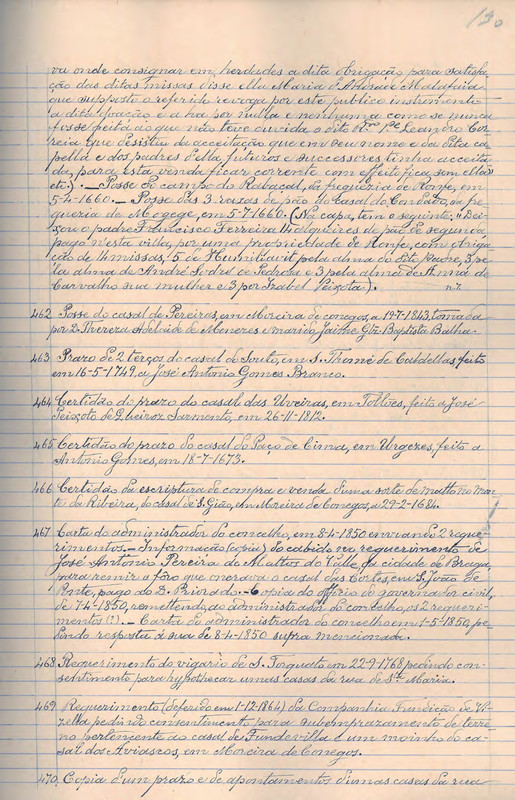 130
va onde consignar em herdades a dita obrigação para satisfa-
ção das ditas missas disse ella Maria d'Andrade Malafaia
que supposto o referido revoga por este publico instrumento
a dita doação e a ha por nulla e nenhuma como se nunca
fosse feita ao que não teve duvida o dito Rdo Pe Leandro Cor-
reia que desistiu da acceitação que em seu nome e da dita ca-
pella e dos padres d'ella, futuros e successores tinha acceita-
da, para esta venda ficar corrente com effeito fica sem ella
etc.). — Posse do campo do Rabaçal, da freguezia de Ronfe, em
5-4-1660. — Posse das 3 rasas de pão do casal do Condado, da fre-
guezia de Mogege, em 5-7-1660. (Na capa, tem o seguinte: "Dei-
xou o padre Francisco Ferreira 14 alqueires de pão de segunda,
pago n'esta villa, por uma propriedade de Ronfe, com obriga-
ção de 14 missas, 5 de pela alma do dito padre, 3 pe-
la alma de André de Pedrosa e 3 pela alma de Anna de
Carvalho sua mulher e 3 por Izabel Peixota).
462 Posse do casal de Pereiras, em Moreira de conegos, a 19-7-1843, tomada
por D. Thereza Adelaide de Menezes e marido Jaime Gtz. Baptista Balha.
463 Prazo de 2 terços do casal do Souto, em S. Thomé de Caldellas, feito
em 16-5-1749, a José Antonio Gomes Branco.
464 Certidão do prazo do casal das Uveiras, em Tollões, feito a José
Peixoto de Queiroz Sarmento, em 26-11-1812.
465 Certidão do prazo do casal do Paço de Cima, em Urgezes, feito a
Antonio Gomes, em 18-7-1673.
466 Certidão da escriptura de compra e venda d'uma sorte de matto no mon-
te da Ribeira, do casal de S. Gião, em Moreira de Conegos, a 29-2-1684.
467 Carta do administrador do concelho, em 8-4-1850 enviando 2 reque-
rimentos. — Informação (copia) do exibido no requerimento de
José Antonio Pereira de Mattos do Valle, da cidade de Braga,
para remir o fôro que onerava o casal das Cortes, em S. João de
Ponte, pago do D. Priorado. — Copia do officio do governador civil,
de 7-4-1850, remettendo, ao administrador do concelho, os 2 requeri-
mentos (?). — Carta do administrador do concelho em 1-5-1850, pe-
dindo resposta á sua de 8-4-1850 supra mencionada.
468 Requerimento do vigario de S. Torquato em 22-9-1768 pedindo con-
sentimento para hypothecar umas casas da rua de Sta Maria.
469 Requerimento (deferido em 1-12-1864) da Companhia Fundição de Vi-
zella pedindo consentimento para subemprazamento de terre-
no pertencente ao casal de Fundevilla e um moinho do ca-
sal dos Aviascos, em Moreira de Conegos.
470 Copia d'um prazo e de apontamentos d'umas casas da rua